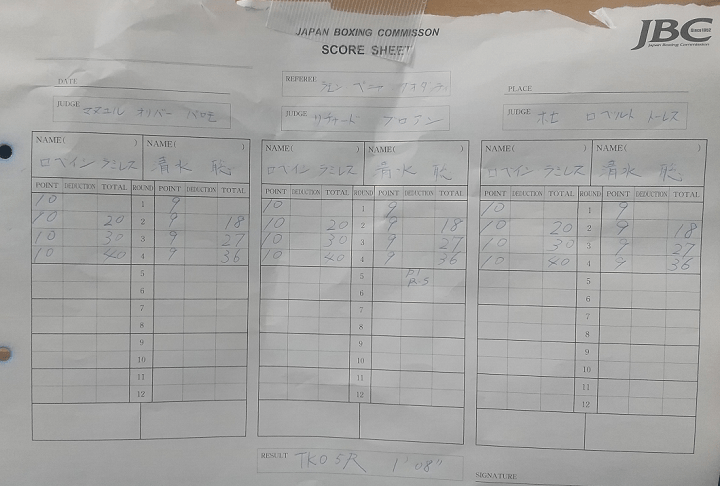 JAPAN BOXING COMMISSON
SCORE SHEET
JBC
Since1952
Japan Boxing Commission
DATE
REFEREE
PLACE
JUDGE マヌエル オリバー パロモ
JUDGE リチャード
JUDGE ホセ ロベルト トーレス
NAME( ) NAME( ) NAME( ) NAME( ) NAME( ) NAME( )
ロベイシ ラミレス 清水 聡 ロベイシ ラミレス 清水 聡 ロベイシ ラミレス 清水 聡
POINT DEDUCTION TOTAL ROUND POINT DEDUCTION TOTAL POINT DEDUCTION TOTAL ROUND POINT DEDUCTION TOTAL POINT DEDUCTION TOTAL ROUND POINT DEDUCTION TOTAL
10 1 9 10 1 9 10 1 9
10 20 2 9 18 10 20 2 9 18 10 20 2 9 18
10 30 3 9 27 10 30 3 9 27 10 30 3 9 27
10 40 4 9 36 10 40 4 9 36 10 40 4 9 36
5 5 5
6 6 6
7 7 7
8 8 8
9 9 9
10 10 10
11 11 11
12 12 12
RESULT TKO 5R 1'08"
SIGNATURE